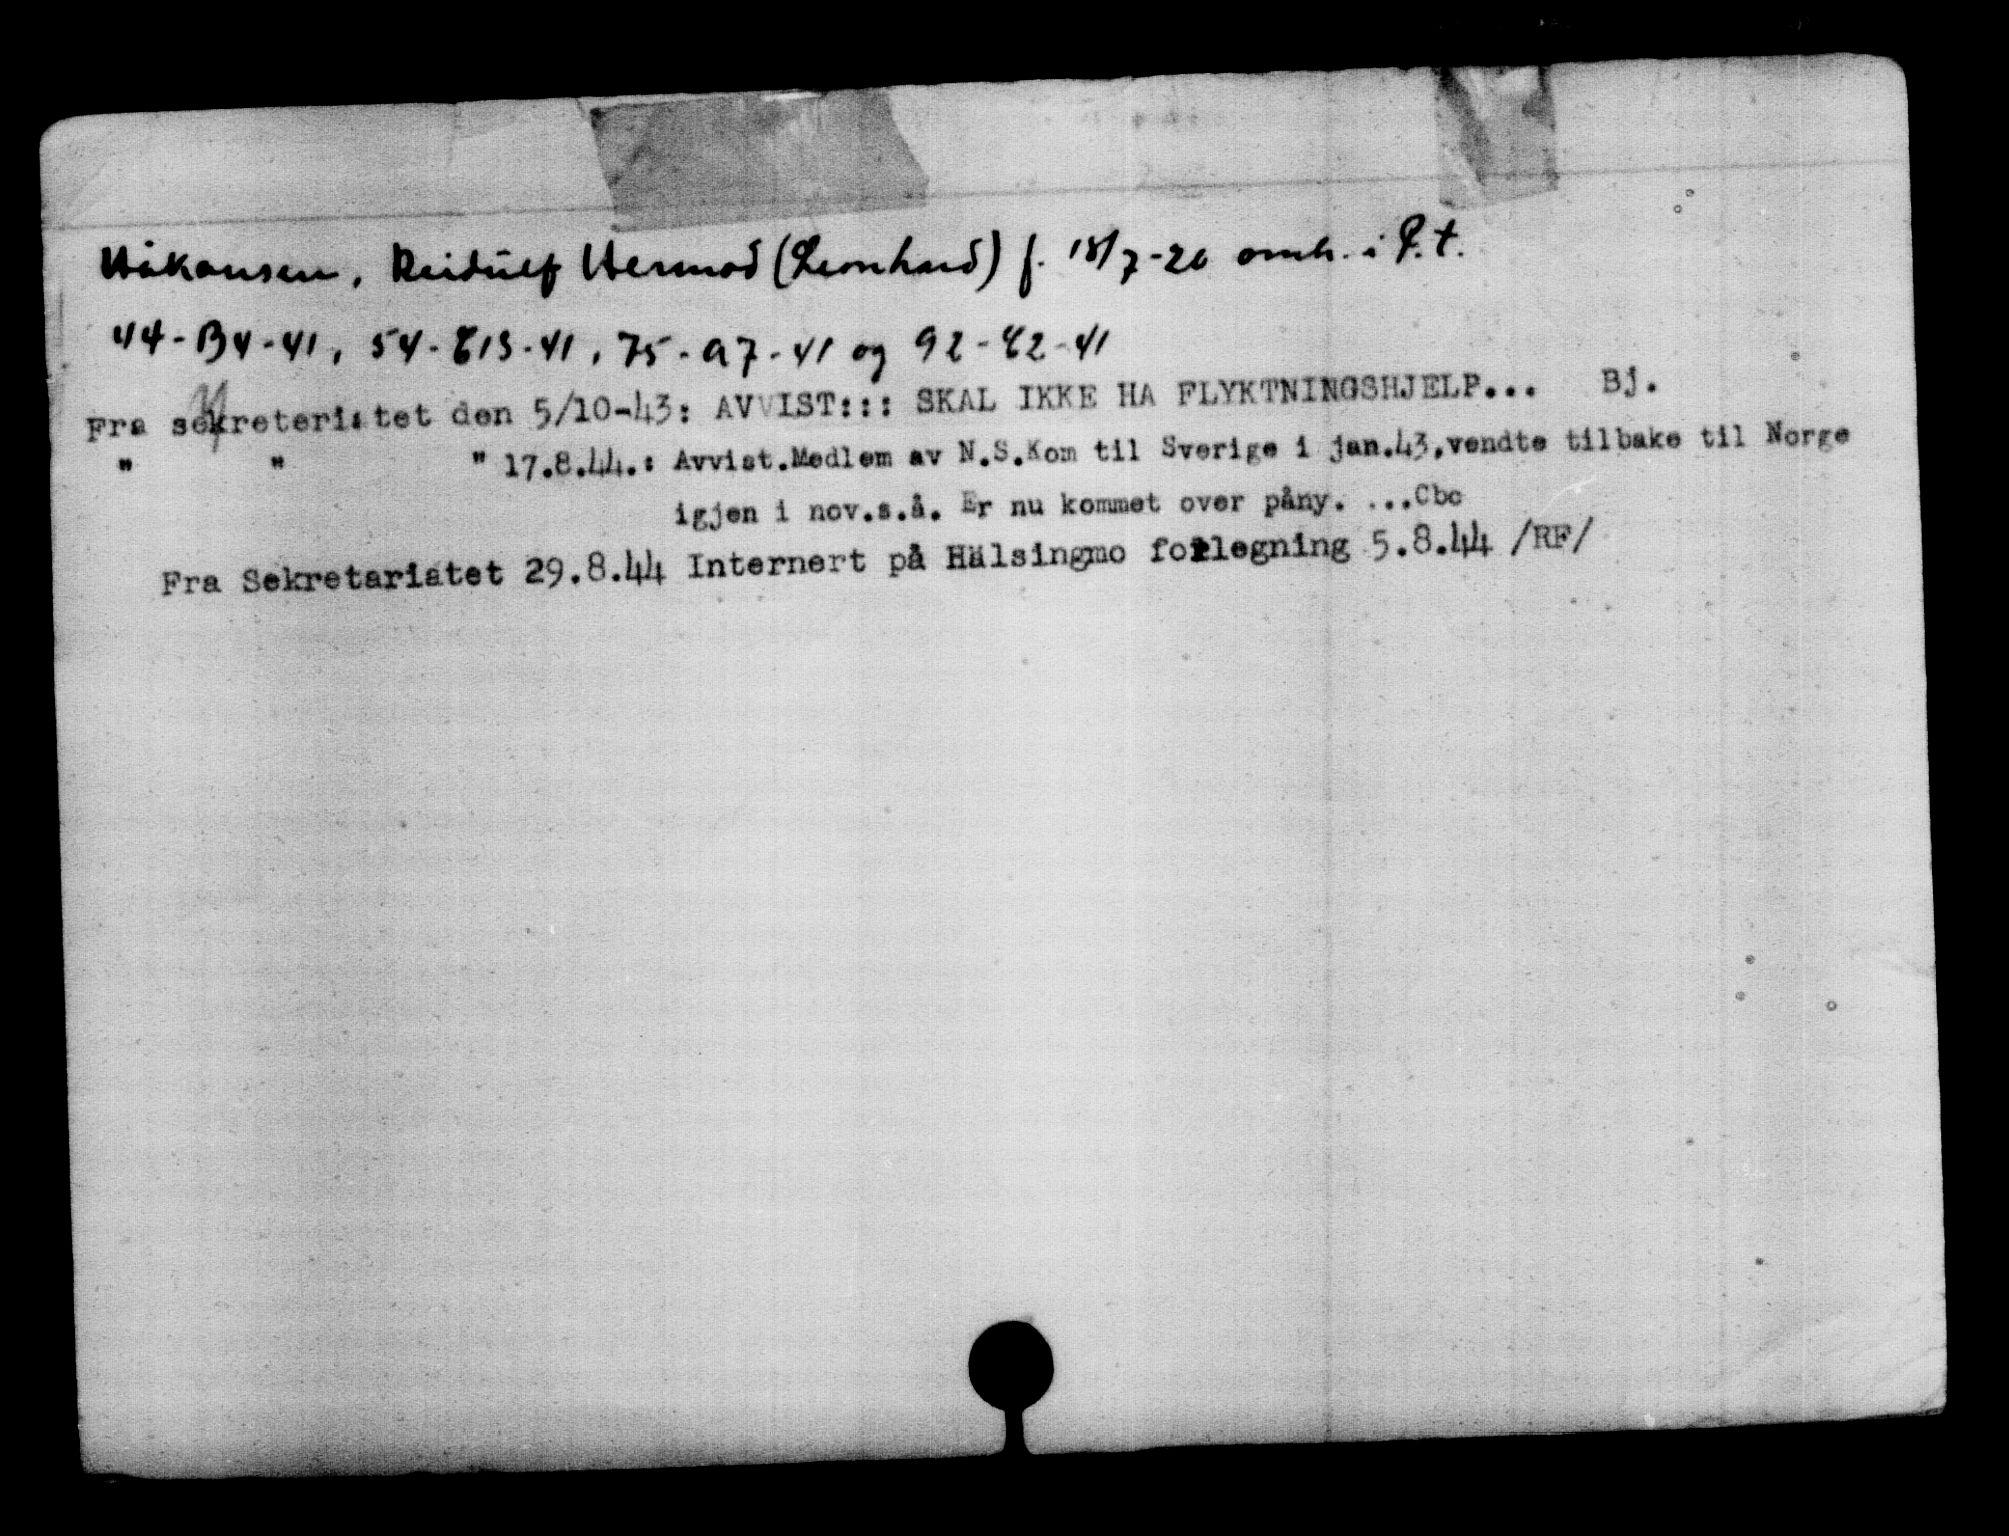 Håkansen, Reidulf Hermod (Leonhard) f. 18/7-20 omh. i P.t.
44-B4-41, 54-E13-41, 75-A7-41 og 92-E2-41
Fra sekreteriatet den 5/10-43: AVVIST::: SKAL IKKE HA FLYKTNINGSHJELP... Bj.
" " " 17.8.44.: Avvist.Medlem av N.S.Kom til Sverige i jan.43,vendte tilbake til Norge
igjen i nov.s.å. Er nu kommet over påny. ...Cbc
Fra Sekretariatet 29.8.44 Internert på Hälsingmo forlegning 5.8.44 /RF/